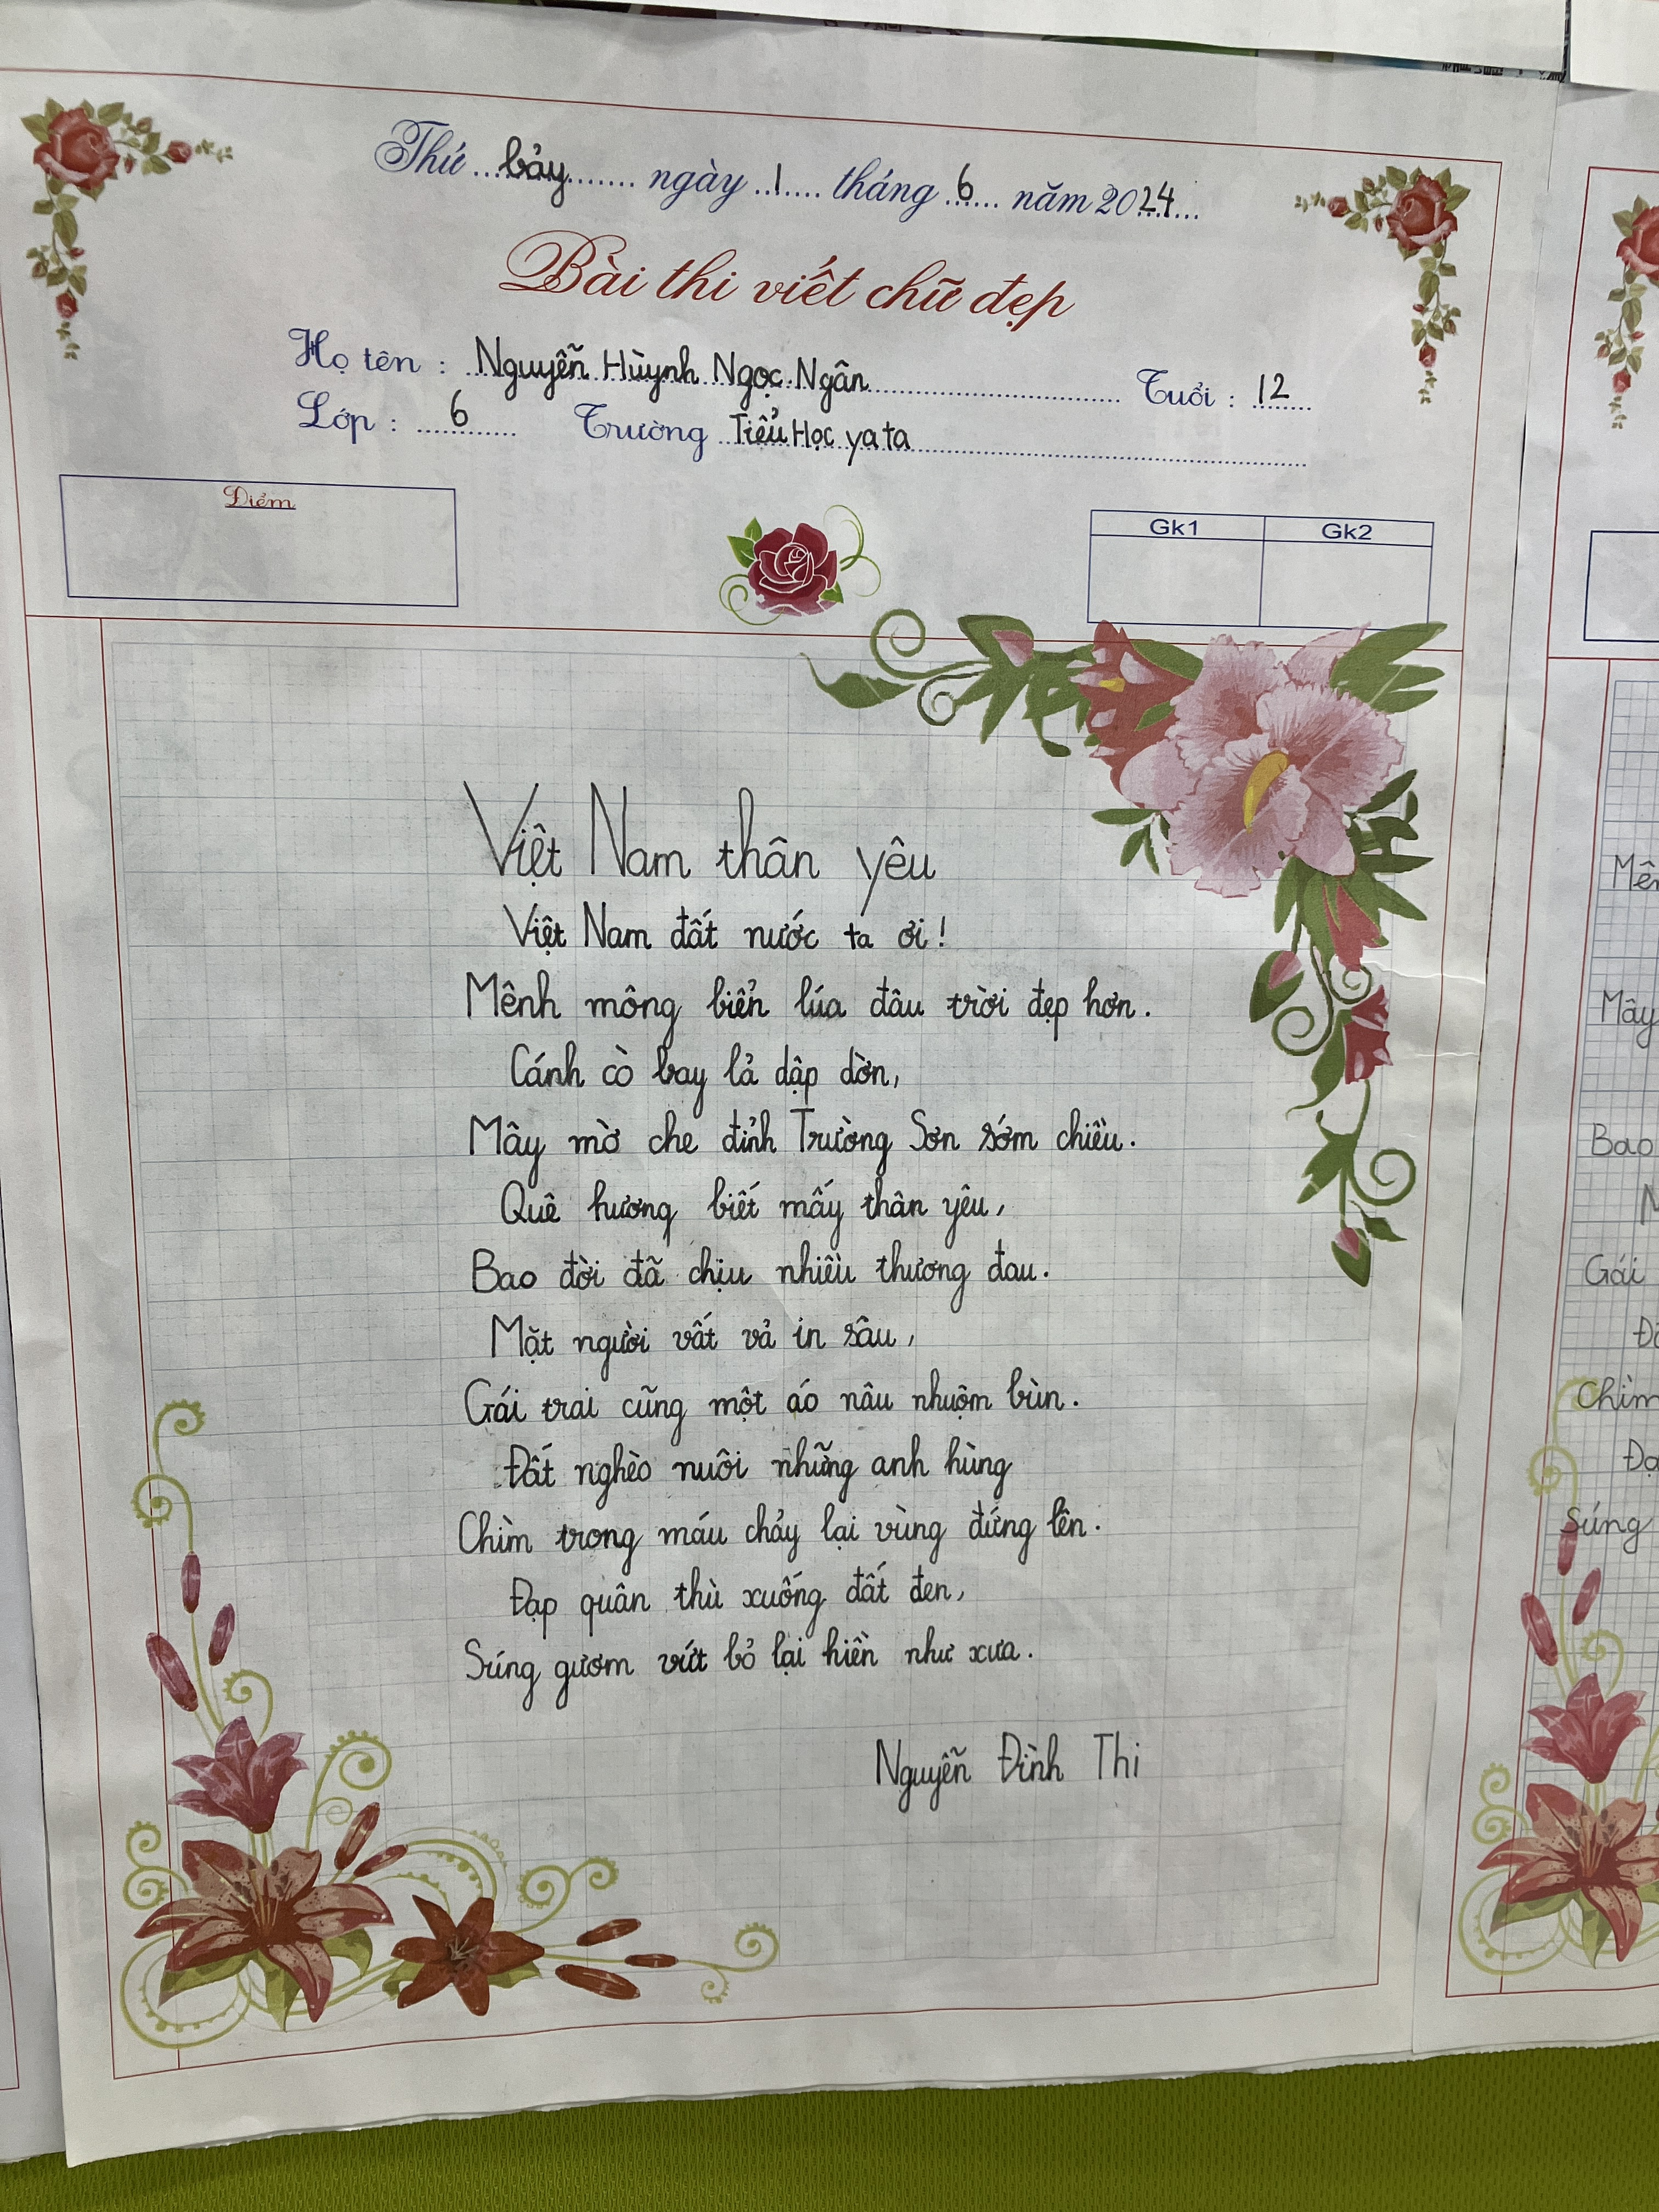 Thứ bảy ngày 1 tháng 6 năm 2024
Bài thi viết chữ đẹp
Họ tên : Nguyễn Hùynh Ngọc Ngân Tuổi : 12
Lớp : 6 Trường Tiểu Học yata
Điểm
Gk1 Gk2
Việt Nam thân yêu
Việt Nam đất nước ta ơi!
Mênh mông biển lúa đâu trời đẹp hơn.
Cánh cò bay lả dập dờn,
Mây mờ che đỉnh Trường Sơn sớm chiều.
Quê hương biết mấy thân yêu,
Bao đời đã chịu nhiều thương đau.
Mặt người vất vả in sâu,
Gái trai cũng một áo nâu nhuộm bùn.
Đất nghèo nuôi những anh hùng
Chìm trong máu chảy lại vùng đứng lên.
Đạp quân thù xuống đất đen,
Súng gươm vứt bỏ lại hiền như xưa.
Nguyễn Đình Thi
Mây
Bao
Gái
Chìm
Súng